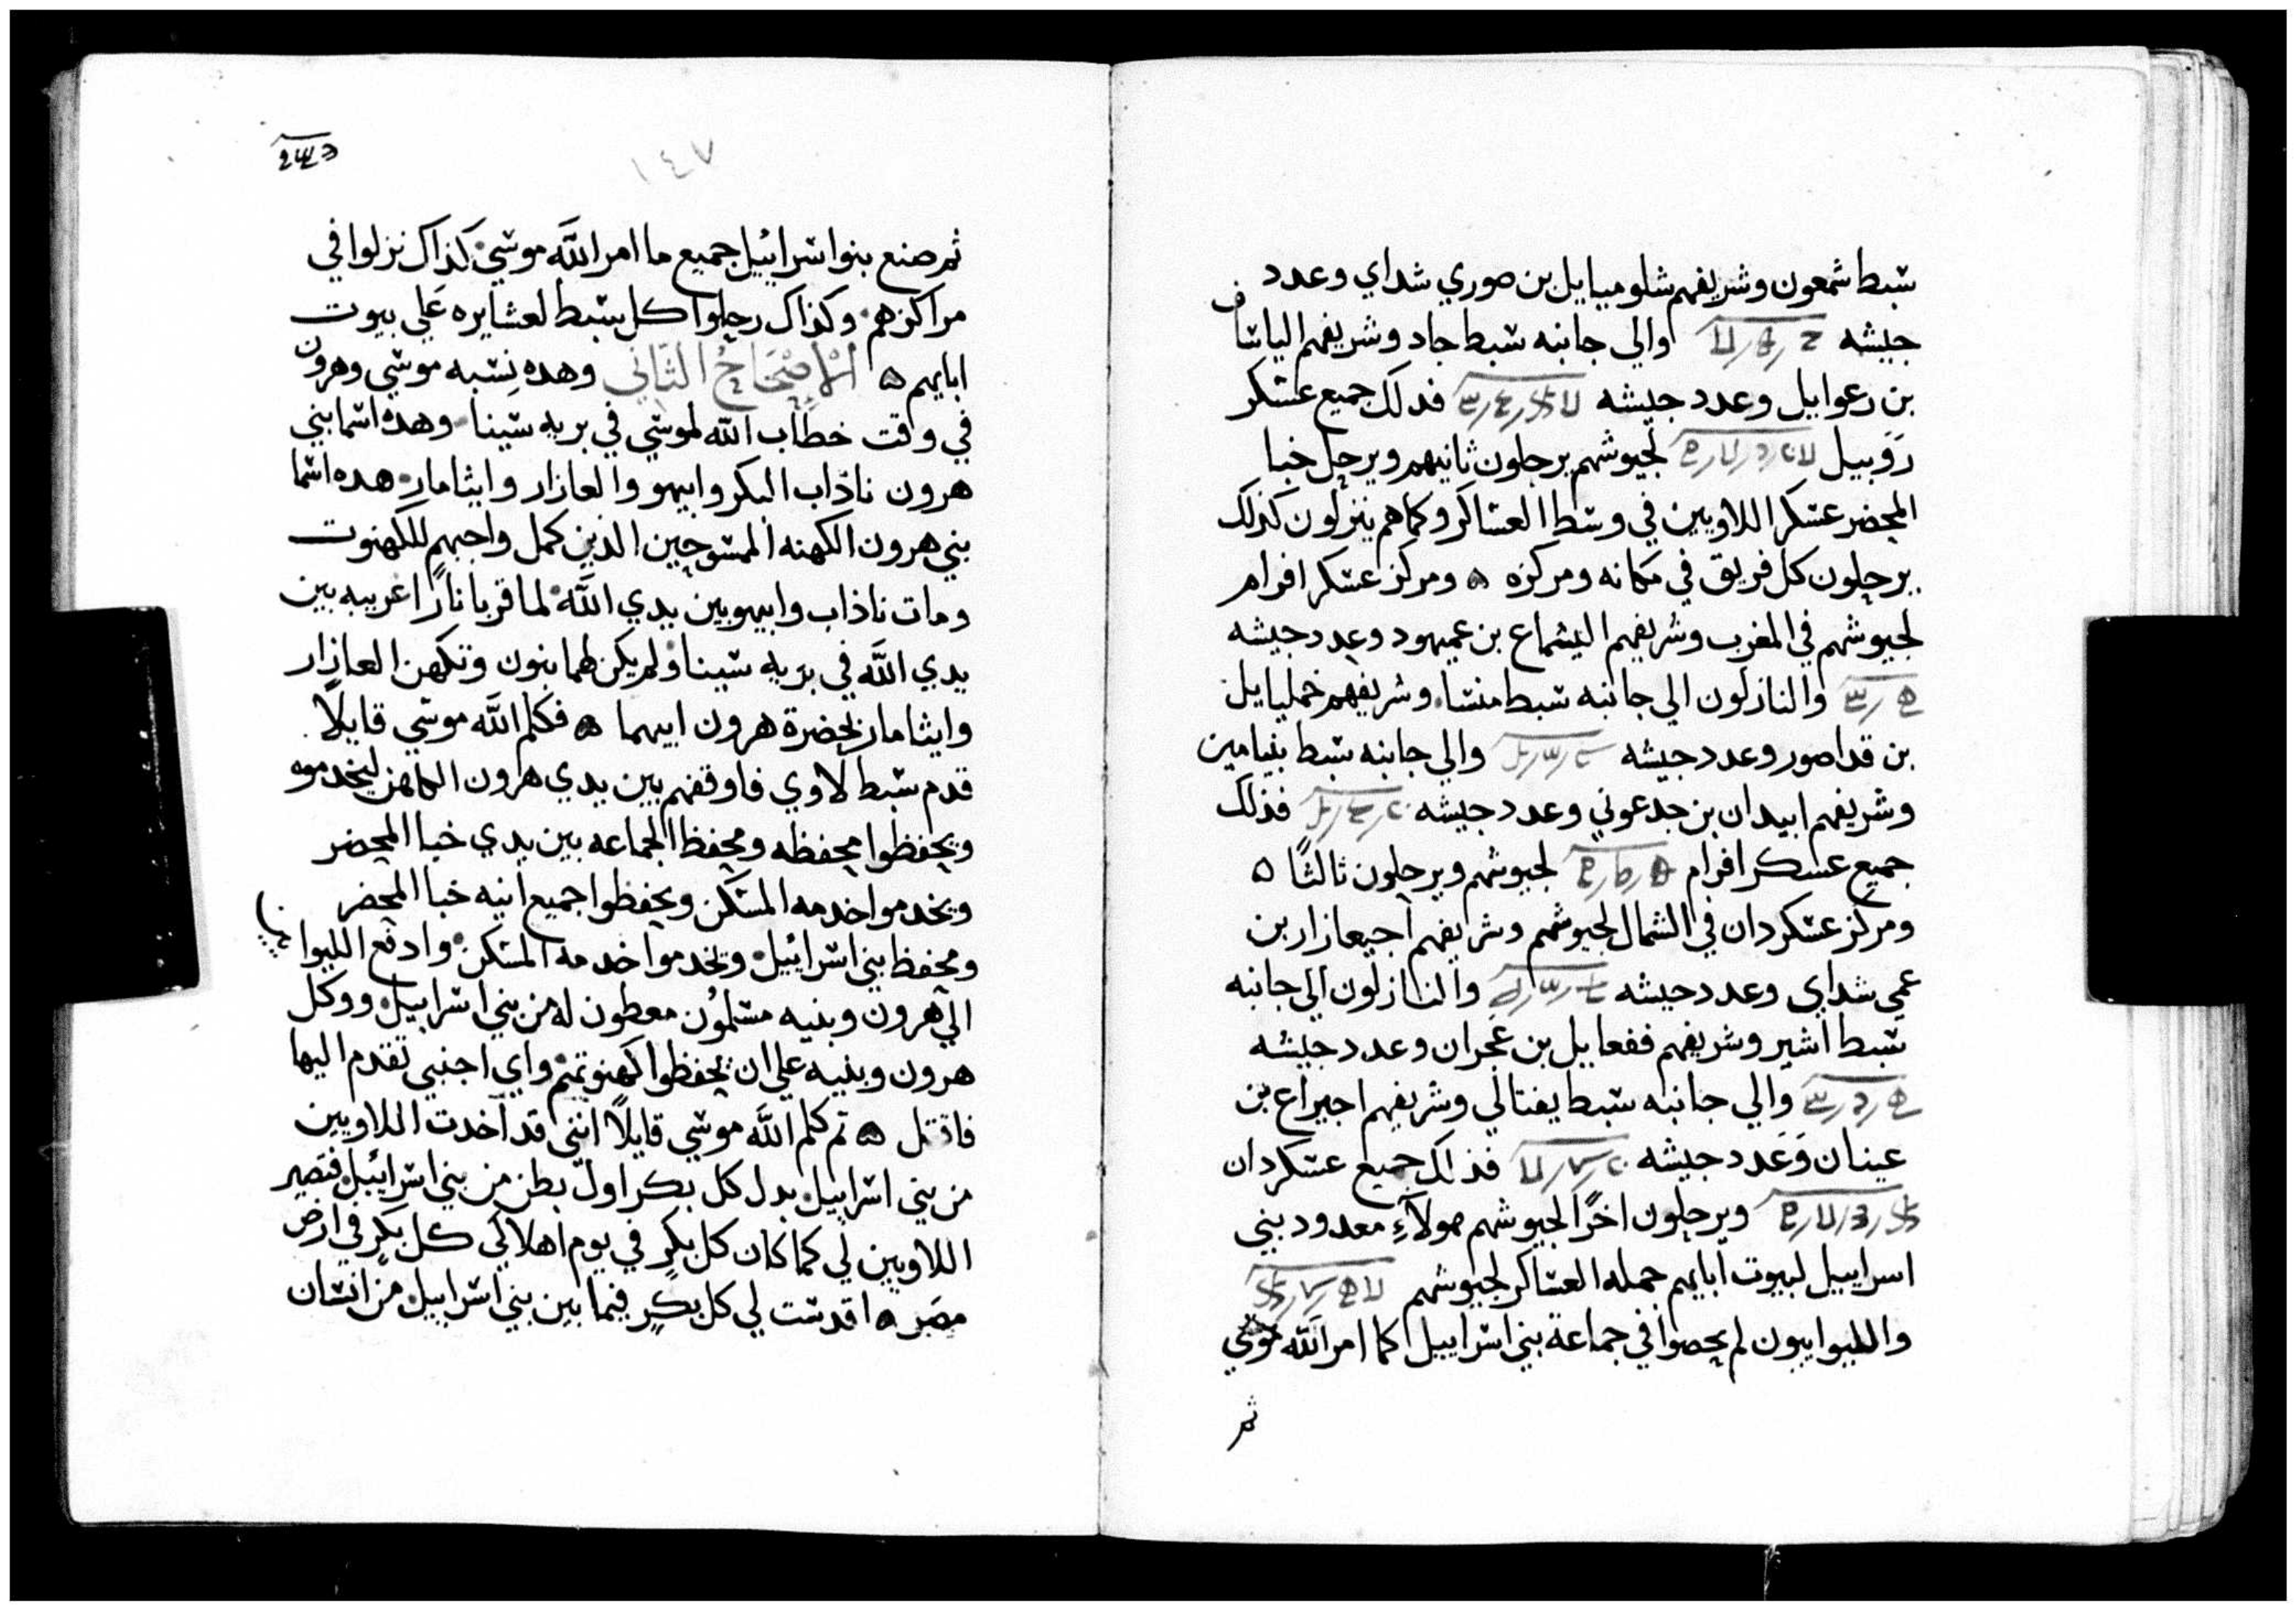 شبط شمعون وشريفهم شلوميايل بن صوري شداي وعدد
جيشه والي جانبه شبط جاد وشريفهم الياشاف
بن رعوايل وعدد جيشه فدلك جميع عشكر
روبيل لجيوشهم يرحلون ثانيهم ويرحل خبا
المحضر عشكر اللاويين في وشط العشاكر وكما هم ينزلون كذلك
يرحلون كل فريق في مكانه ومركزه ۵ ومركز عشكر افرام
لجيوشهم في المغرب وشريفهم اليشماع بن عميهود وعدد جيشه
والنازلون الي جانبه شبط منشا وشريفهم خمليايل
بن قداصور وعدد جيشه والي جانبه شبط بنيامين
وشريفهم ابيدان بن جدعوني وعدد جيشه فذلك
جميع عسكر افرام لجيوشهم ويرحلون ثالثًا ۵
ومركز عشكر دان في الشمال لجيوشهم وشريفهم اجيعازار بن
عمي شداي وعدد جيشه والنازلون الي جانبه
شبط اشير وشريفهم ففعايل بن عجران وعدد جيشه
والي جانبه شبط يفتالي وشريفهم اجيراع بن
عينان وَعَدد جيشه فذلك جميع عشكر دان
ويرحلون اخرًا لجيوشهم هولآءِ معدود بني
اسراييل لبيوت ابايهم جمله العشاكر لجيوشهم
والليوايون لم يحصوا في جماعة بني اشراييل كما امر اللَّه موشي
ثم
١٤٧
ثم صنع بنوا اشرائيل جميع ما امر اللَّه موشي كذاك نزلوا في
مراكزهم وكذاك رحلوا كل شبط لعشايره عَلي بيوت
ابايهم ۵ الإصحَاحُ الثَّاني وهده نِسْبه موشي وهرون
في وقت خطاب اللَّه لموشي في بريه شينا وهده اشما بني
هرون ناذاب البكر وابيهو والعازار وايثامار هده اشما
بني هرون الكهنه الممشوحين الذين كمل واجبهم للكهنوت
ومات ناذاب وابيهو بين يدي اللَّه لما قربا نارًا غريبه بين
يدي اللَّه في بَريه شينا ولم يكن لهما بنون وتكهن العازار
وايثامار بحضرة هرون ابيهما ۵ فكلم اللَّه موشي قايلًا
قدم شبط لاوي فاوقفهم بين يدي هرون الكاهن ليخدموه
ويحفظوا محفظه ومحفظ الجماعه بين يدي خبا المحضر
ويخدموا خدمه المشكن ويحفظوا جميع انيه خبا المحضر
ومحفظ بني اشرائيل ويخدموا خدمه المشكن وادفع الليوا
الي هرون وبنيه مشلمُون معطون له من بني اشراييل ووكل
هرون وبنيه علي ان يحفظوا كهنوتهم واي اجنبي تقدم اليها
فاقتل ۵ تم كلم اللَّه موشي قايلًا انني قد اخدت اللاويين
من بني اشراييل بدل كل بكر اول بطن من بني اشرائيل فتصير
اللاويين لي كما كان كل بكرٍ في يوم اهلاكي كل بكرٍ في ارض
مصَر ۵ اقدشت لي كل بكرٍ فيما بين بني اشراييل من انشان